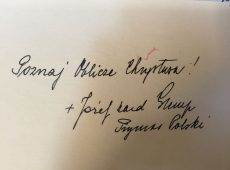 Poznaj Oblicze Chrystusa!
+ Józef kard Glemp
Prymas Polski